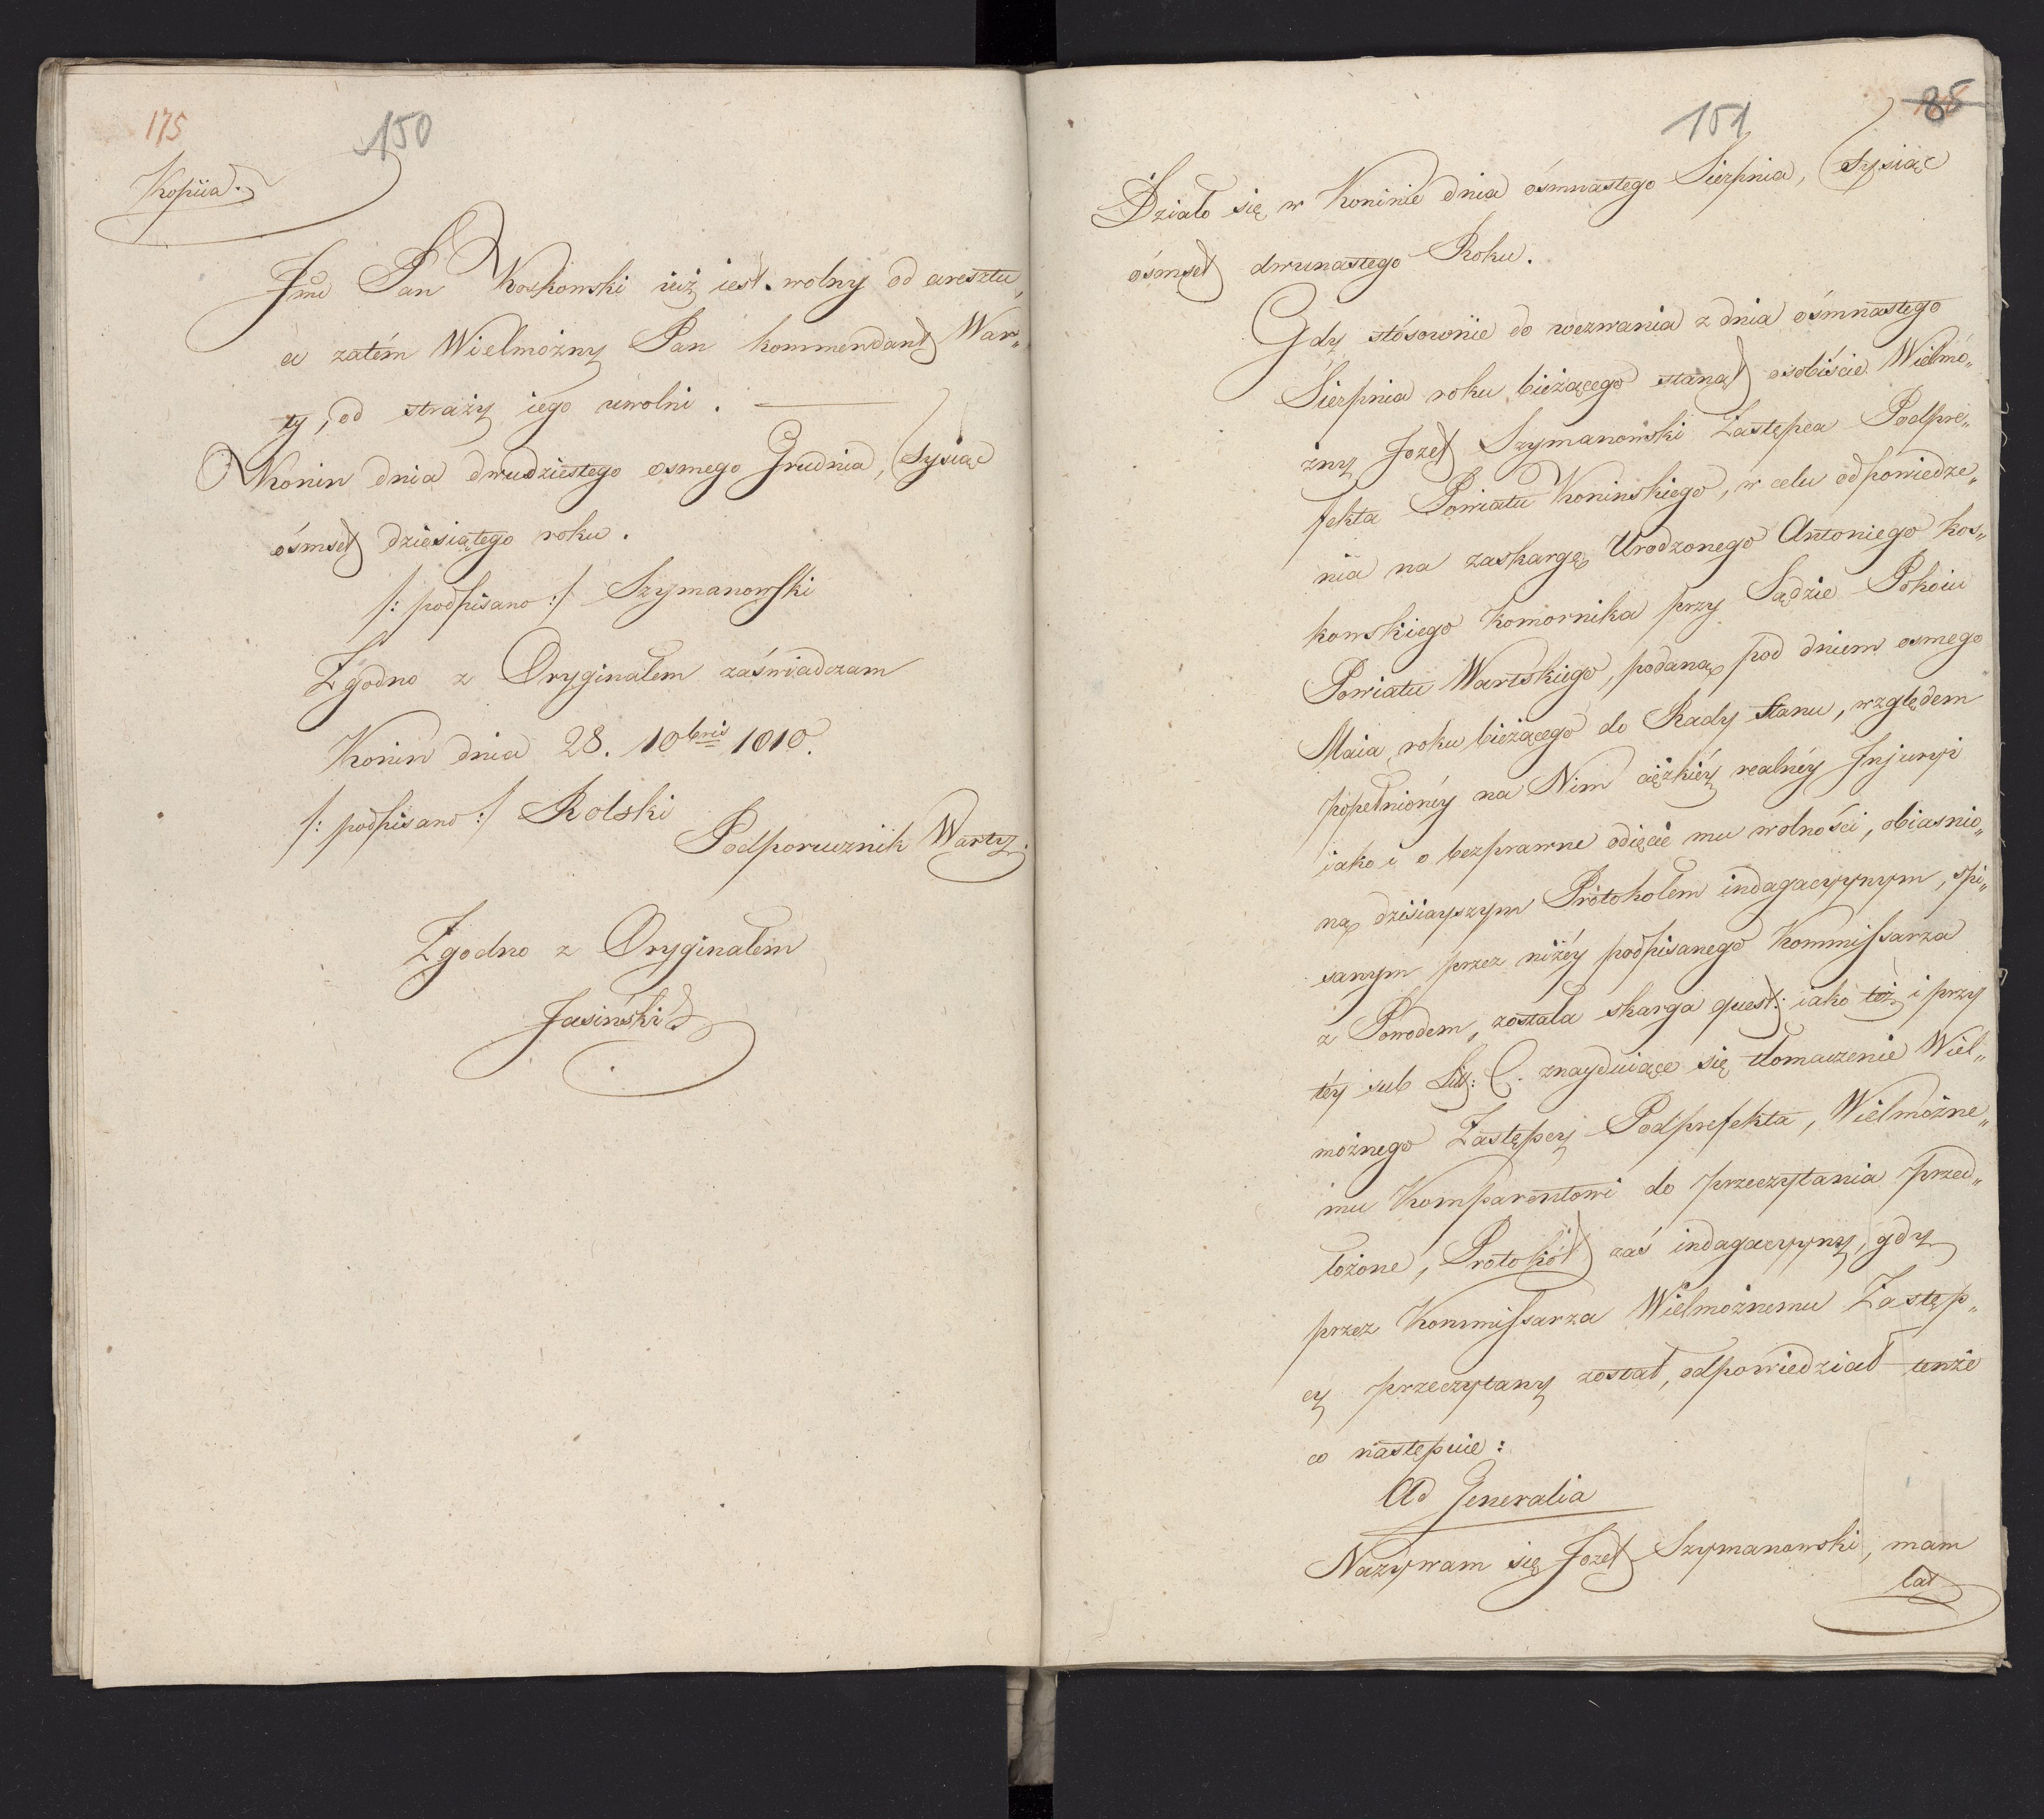 175
150
Kopiia.
Jmć Pan Koskowski iuż iest wolny od aresztu,
a zatém Wielmożny Pan Kommendant War„
ty, od straży iego uwolni.
Konin dnia dwudziestego osmego Grudnia, Tysiąc
ośmset dziesiątego roku.
/: podpisano :/ Szymanowski
Zgodno z Oryginałem zaświadczam
Konin dnia 28. 10bris 1810.
/: podpisano :/ Rolski
Podporucznik Warty.
Zgodno z Oryginałem
Jasiński
151
85
Działo się w Koninie dnia ośmnastego Sierpnia, Tysiąc
ośmset dwunastego Roku.
Gdy stósownie do wezwania z dnia ośmnastego
Sierpnia roku bieżącego stanął osobiście Wielmo„
żny Jozef Szymanowski Zastępca Podpre„
fekta Powiatu Koninskiego, w celu odpowiedze„
nia na zaskargę Urodzonego Antoniego Kos„
kowskiego Komornika przy Sądzie Pokoiu
Powiatu Wartskiego, podaną pod dniem osmego
Maia roku bieżącego do Rady Stanu, względem
popełnionéy na Nim ciężkiéy realnéy Injuryi
iako i o bezprawne odięcie mu wolności, obiasnio„
ną dzisiayszym Protokołem indagacyynym, spi„
sanym przez niżéy podpisanego Kommissarza
z Powodem, została skarga quest: iako też i przy
téy sub Litt: C. znayduiące się tłomaczenie Wiel„
możnego Zastępcy Podprefekta, Wielmożne„
mu Komparentowi do przeczytania przed„
łożone, Protokół zaś indagacyyny, gdy
przez Kommissarza Wielmożnemu Zastęp„
cy przeczytany został, odpowiedział tenże
co następuie:
Ad Generalia
Nazywam się Jozef Szymanowski, mam
lat